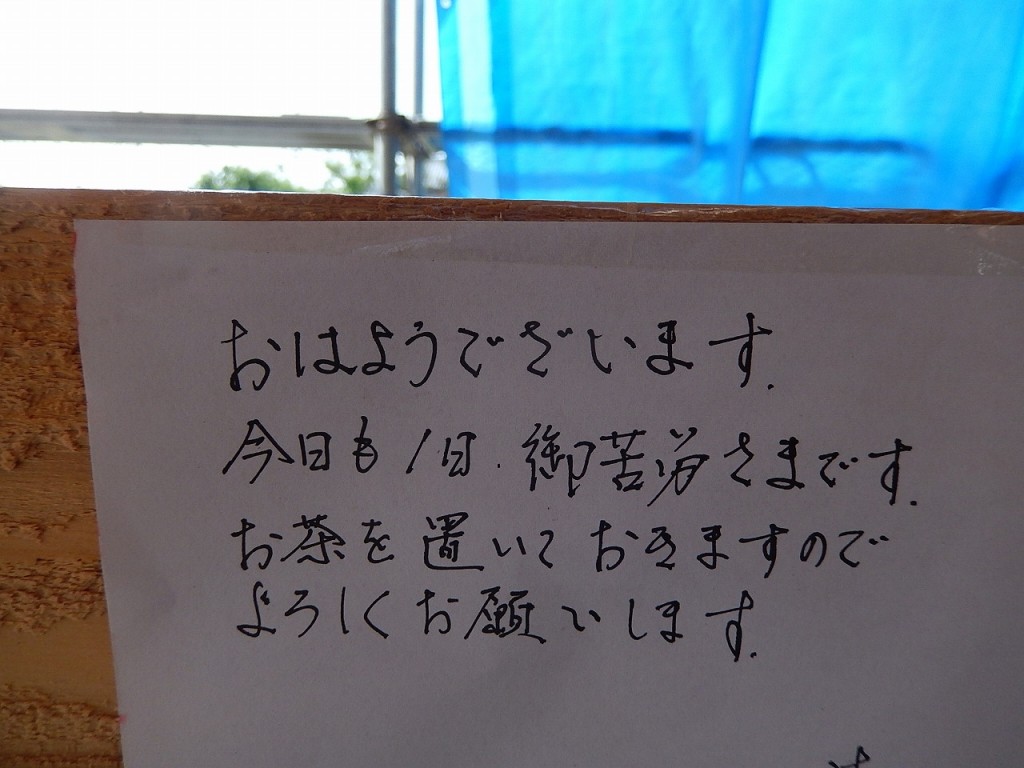 おはようございます.
今日も1日.御苦労さまです.
お茶を置いておきますので
よろしくお願いします.